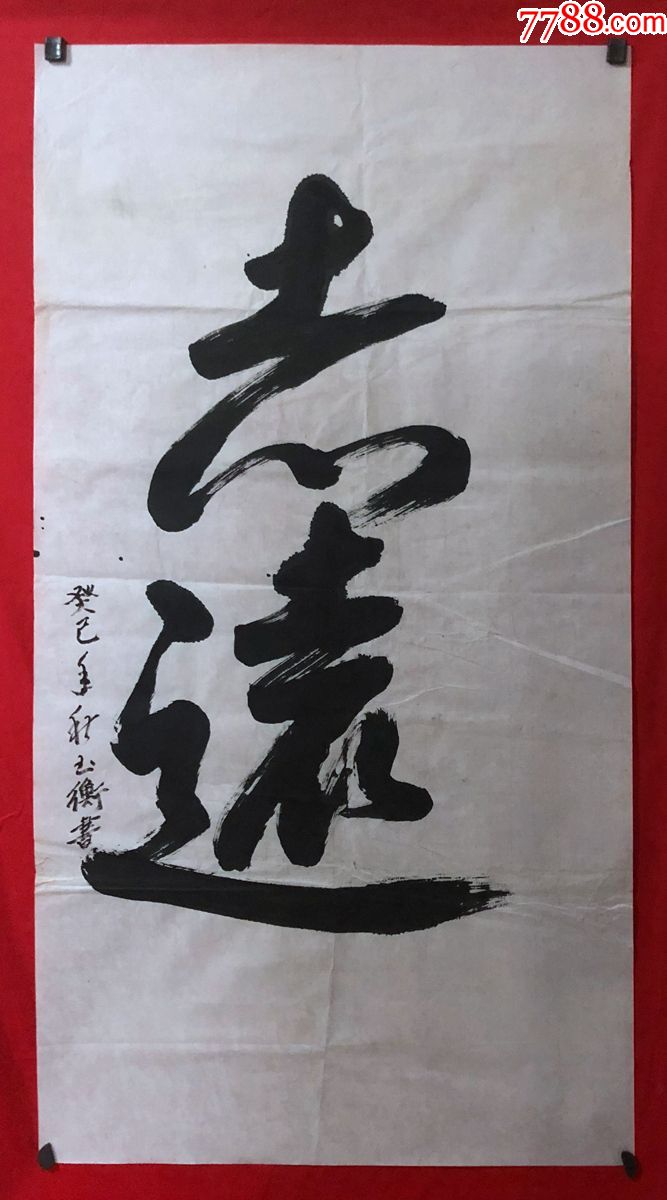 7788.com
志
遠
癸巳年秋玉衡書